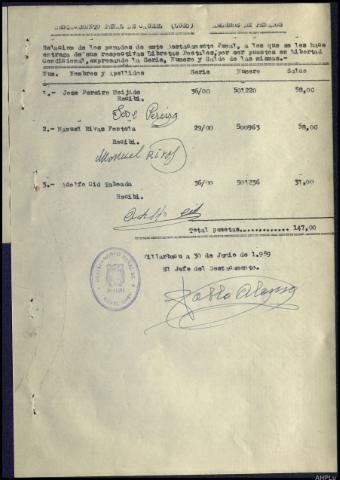 DESTACAMENTO PENAL DE (LUGO)
Relacion de los penados de este Destacamento Penal, a los que se les hace
entrega de sus respectivas Libretas Postales, por ser puestos en libertad
Condicional, expresando la Serie, Numero y Saldo de las mismas.-
Num. Nombres y Apellidos Serie Numero Saldo
1.- Jose Pereira Meijide 36/00 501220 58,00
Recibi.
Jose Pereira
2.- Manuel Rivas 29/00 500963 58,00
Recibi.
Manuel Rivas
3.- Adolfo Cid 36/00 501236 31,00
Recibi.
Adolfo Cid
Total pesetas............ 147,00
a 30 de Junio de 1.959
El Jefe del Destacamento.
DESTACAMENTO PENAL DE
Pablo Alonso
AHPLu